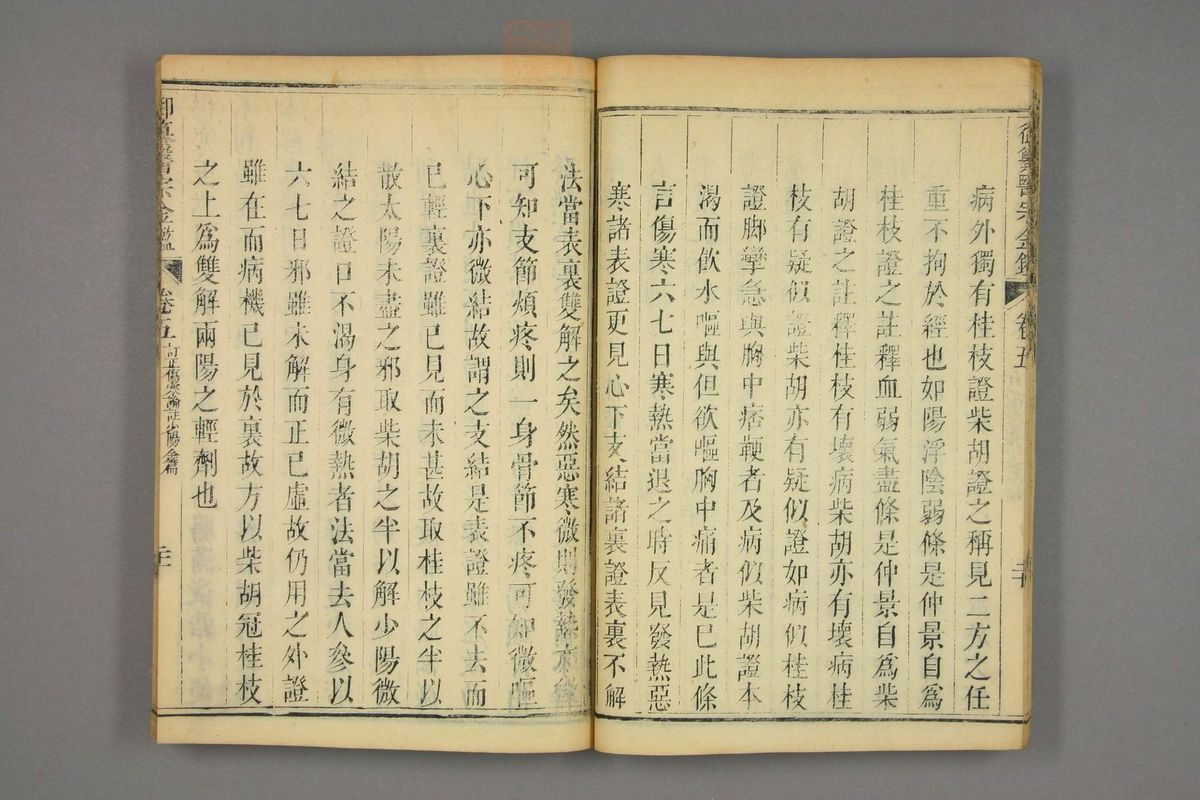 御纂醫宗金鑑 卷五 二十
病外獨有桂枝證柴胡證之稱見二方之任
重不拘於經也如陽浮陰弱條是仲景自爲
桂枝證之註釋血弱氣盡條是仲景自爲柴
胡證之註釋桂枝有壞病柴胡亦有壞病桂
枝有疑似證柴胡亦有疑似證如病似桂枝
證脚攣急與胸中痞鞕者及病似柴胡證本
渴而飲水嘔與但欲嘔胸中痛者是已此條
言傷寒六七日寒熱當退之時反見發熱惡
寒諸表證更見心下支結諸裏證表裏不解
法當表裏雙解之矣然惡寒微則發熱亦微
可知支節煩疼則一身骨節不疼可知微嘔
心下亦微結故謂之支結是表證雖不去而
已輕裏證雖已見而未甚故取桂枝之半以
散太陽未盡之邪取柴胡之半以解少陽微
結之證口不渴身有微熱者法當去人參以
六七日邪雖未解而正已虛故仍用之外證
雖在而病機已見於裏故方以柴胡冠桂枝
之上爲雙解兩陽之輕劑也
御纂醫宗金鑑 卷五 訂正傷寒論註少陽全篇